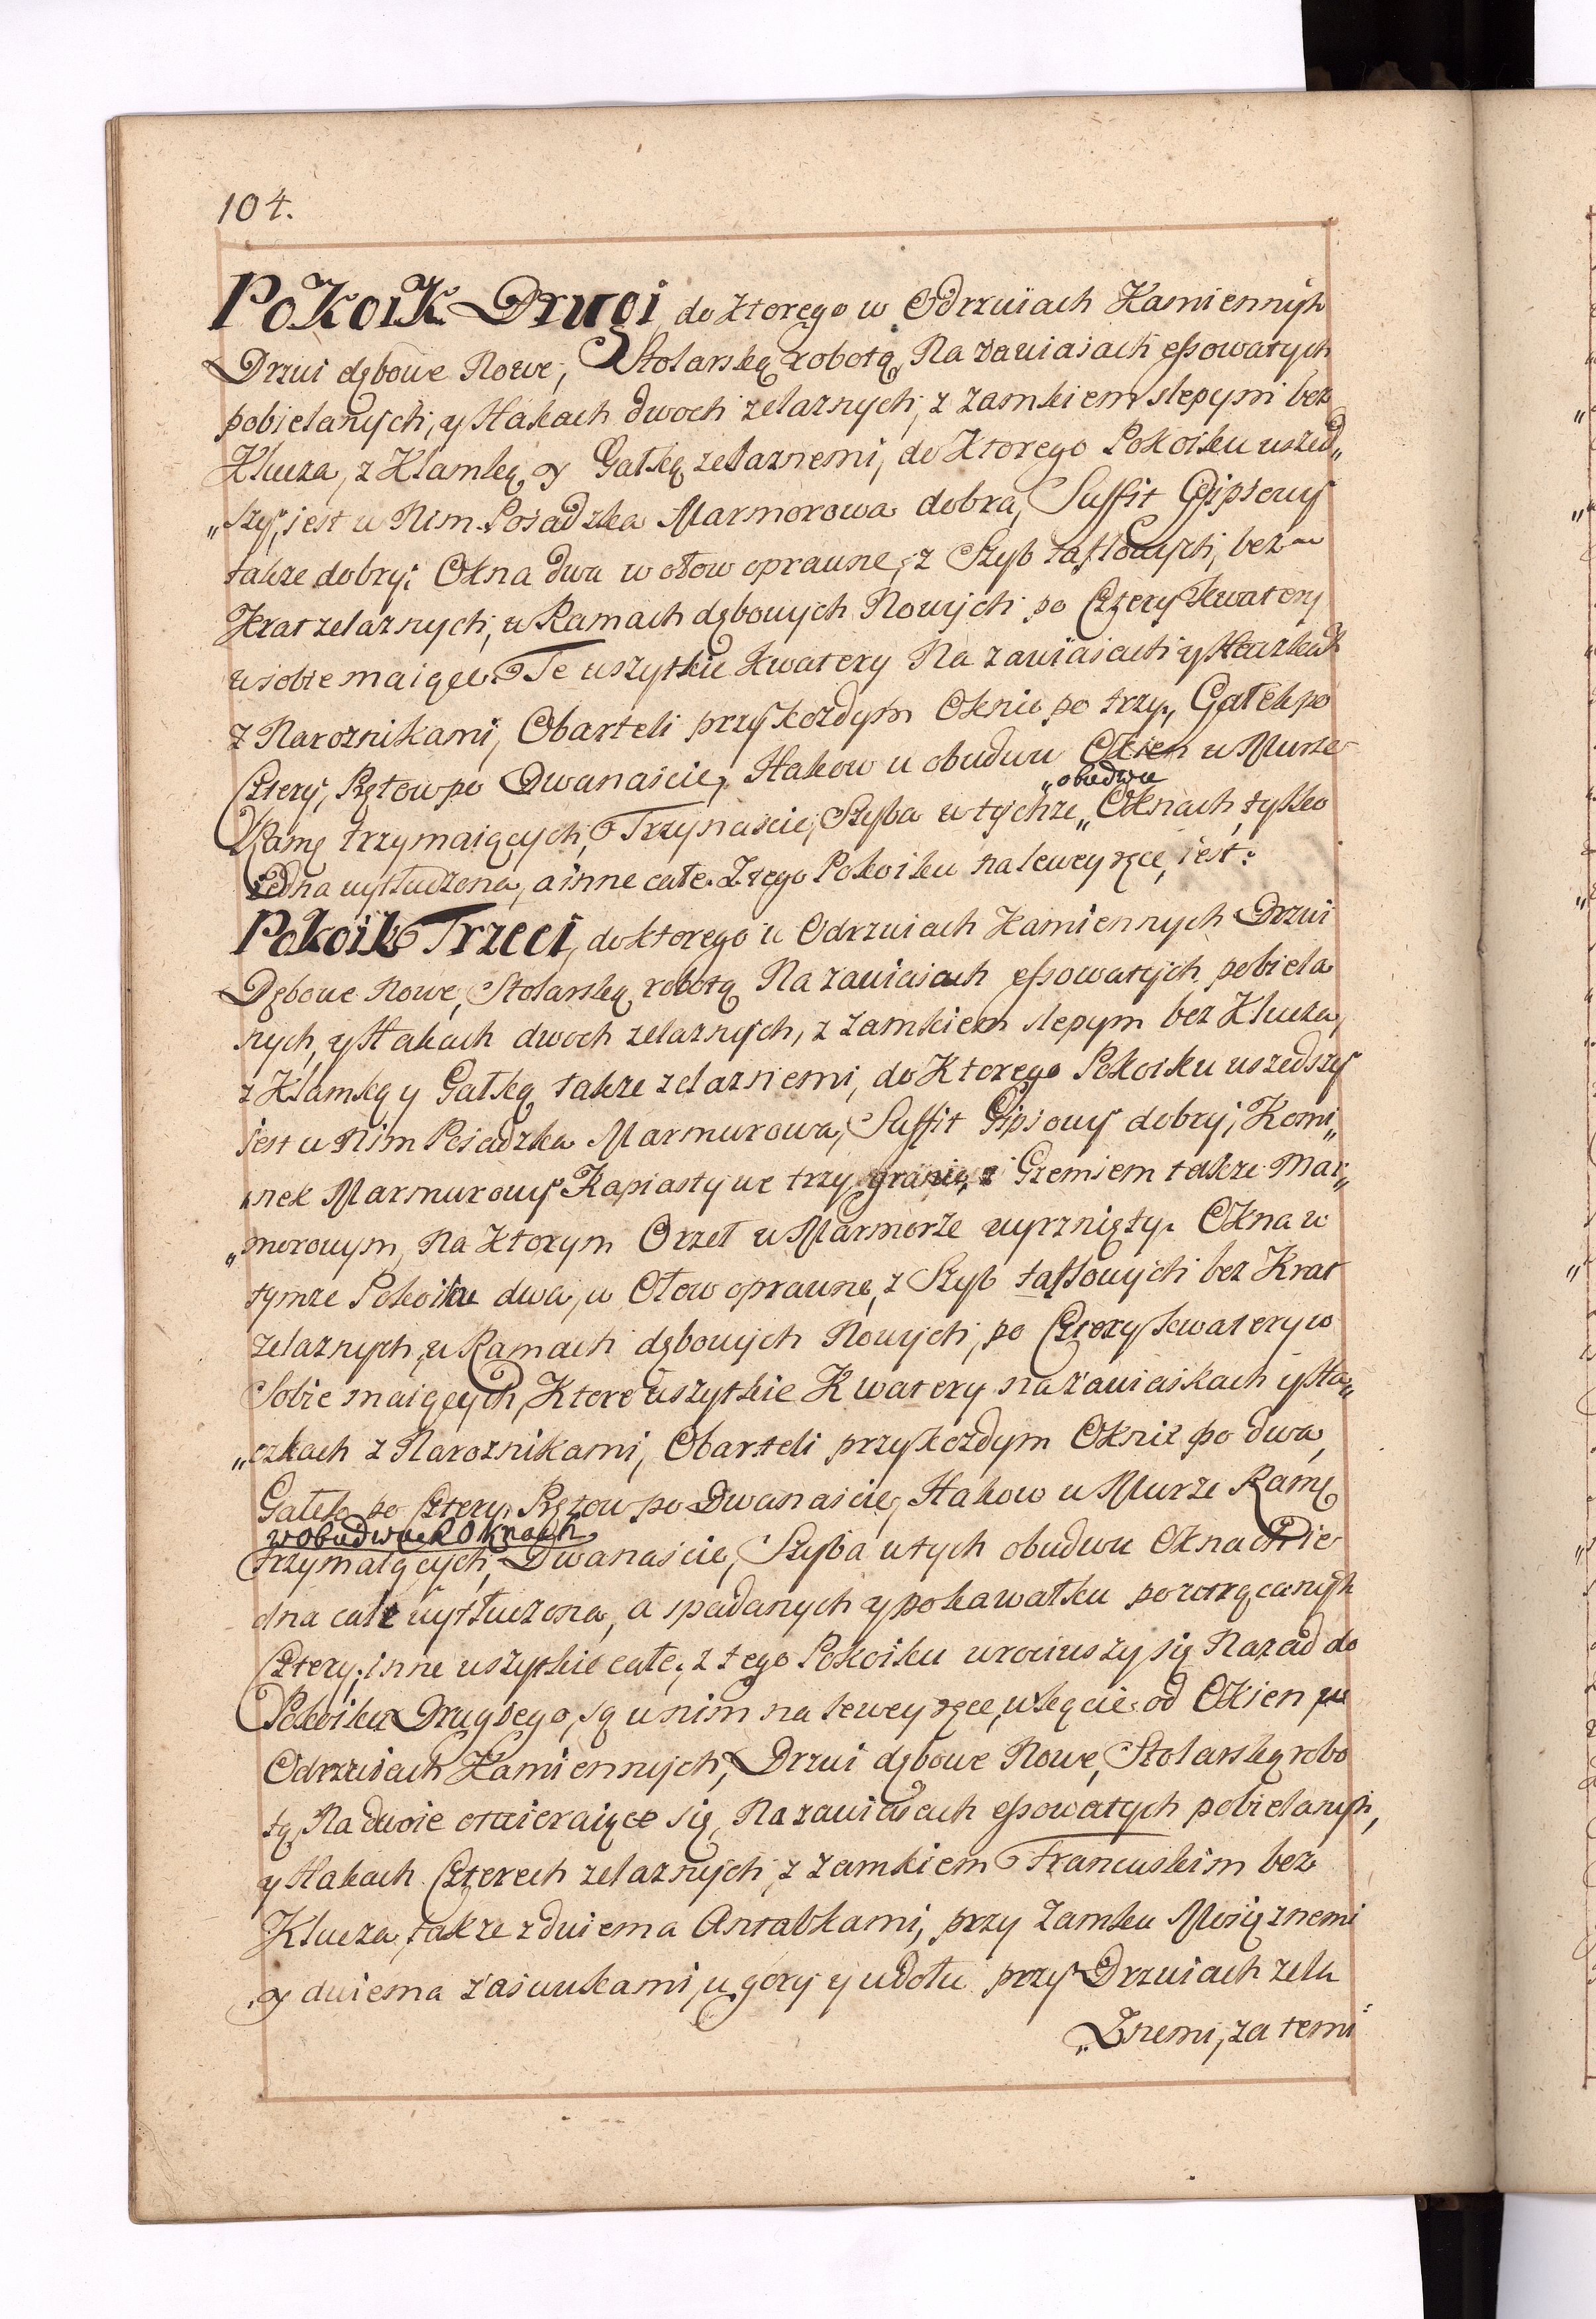 104.
Pokoik Drugi do ktorego w Odrzwiach Kamiennych
Drzwi dębowe Nowe, Stolarską robotą, Na zawiasach essowatych
pobielanych, y Hakach dwoch zelaznych, z zamkiem slepym bez
Klucza, z Klamką y Gałką zelaznemi, do Ktorego Pokoiku wszed„
„szy, iest w Nim Posadzka Marmorowa dobra, Suffit Gipsowy
takze dobry; Okna dwa w ołow oprawne, z Szyb taflowych, bez
Krat zelaznych, w Ramach dębowych Nowych po Cztery Kwatery
w sobie maiące. Te wszytkie Kwatery Na zawiasach y Haczkach
z Naroznikami, Obarteli przy kozdym Oknie po trzy, Gałek po
Cztery, Prętow po Dwanascie, Hakow u obudwu Okien w Murze
Ramę trzymaiących, Trzynascie, Szyba w tychze „obudwu Oknach, tylko
iedna wytłuczona, a inne całe. Z tego Pokoiku na lewey ręce, iest:
Pokoik Trzeci, do ktorego w Odrzwiach Kamiennych Drzwi
Dębowe Nowe, Stolarską robotą Na zawiasach essowatych pobiela
nych, y Hakach dwoch zelaznych, z zamkiem slepym bez Klucza,
z Klamką y Gałką takze zelaznemi, do Ktorego Pokoiku wszedszy
iest w Nim Posadzka Marmurowa, Suffit Gipsowy dobry, Komi„
„nek Marmurowy Kapiasty we trzy granie, z Gzemsem takze Mar„
„morowym, Na Ktorym Orzeł w Marmorze wyrznięty. Okna w
tymze Pokoiku dwa, w Ołow oprawne, z Szyb taflowych bez Krat
zelaznych, w Ramach dębowych Nowych, po Cztery kwatery w
Sobie maiących, Ktore wszytkie Kwatery na zawiaskach y Ha„
„czkach z Naroznikami, Obarteli przy kozdym Oknie po dwa,
Gałek po Cztery, Prętow po Dwanascie, Hakow w Murze Ramę
w obudwuch Oknach
trzymaiących, Dwanascie, Szyba w tych obudwu Oknach ie
dna cale wytłuczona, a spadanych y po kawałku powtrącanych
Cztery, inne wszytkie całe, z tego Pokoiku wrociwszy się Nazad do
Pokoiku Drugiego, są w nim na lewey ręce, w kącie od Okien w
Odrzwiach Kamiennych, Drzwi dębowe Nowe, Stolarską robo
tą, Na dwoie otwieraiące się, Na zawiasach essowatych pobielanych,
y Hakach Czterech zelaznych, z zamkiem Francuskim bez
Klucza, takze z dwiema Antabkami, przy Zamku Mosięznemi
y dwiema zasuwkami, u gory y u dołu przy Drzwiach zela
„Znemi, za temi